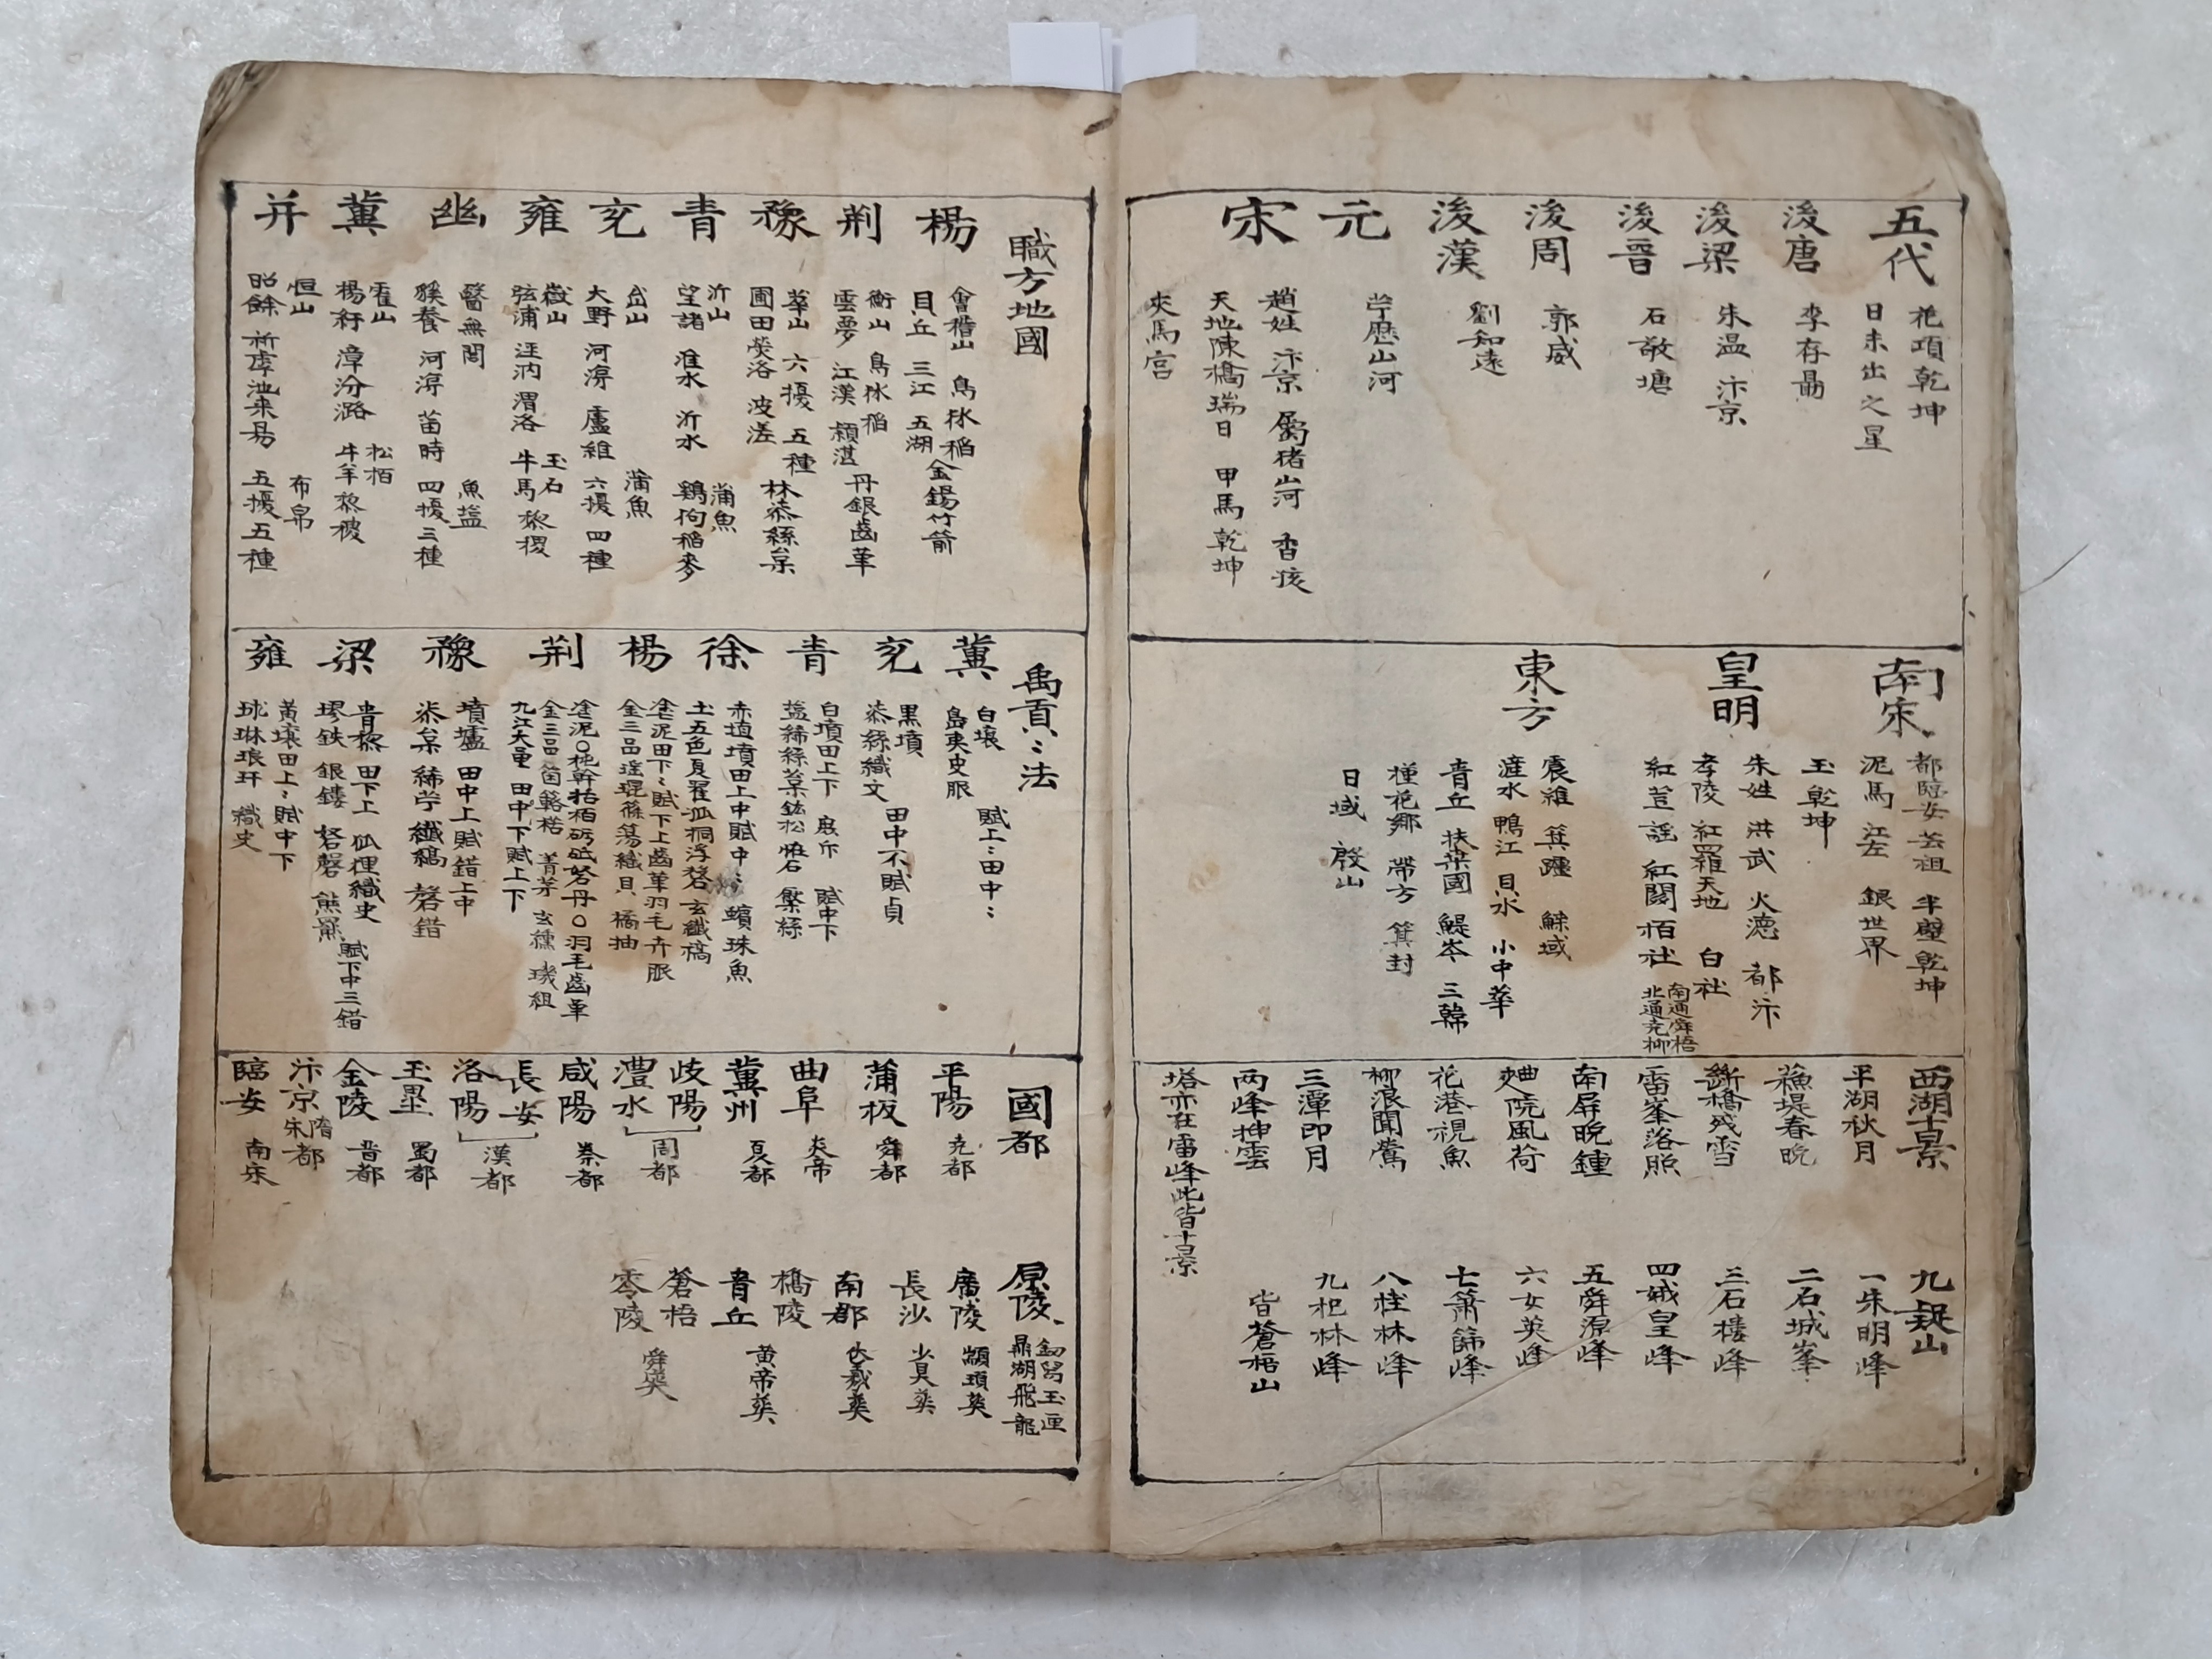 五代 花項乾坤
日未出之星
後唐 李存勗
後梁 朱温 汴京
後晉 石敬塘
後周 郭威
後漢 劉知遠
元 山河
宋 趙姓 汴京 屬猪山河 香孩
天地陳橋瑞日 甲馬乾坤
夾馬宮
南宋 都臨安 半壁乾坤
泥馬 江左 銀世界
玉乾坤
皇明 朱姓 洪武 火德 都汴
孝陵 紅羅天地 白社
紅荳謠 紅閣 栢社 南通舜梧
北通堯柳
東方 震維 箕疆 鰈域
滻水 鴨江 貝水 小中華
青丘 扶桑國 鯷岑 三韓
槿花鄉 帶方 箕封
日域 殷山
西湖十景
平湖秋月
蘓堤春曉
斷橋殘雪
雷峯落照
南屏晩鍾
麯院風荷
花港視魚
柳浪聞鶯
三潭印月
兩峰揷雲
塔亦在雷峰此皆十景
九疑山
一朱明峰
二石城峯
三石樓峰
四娥皇峰
五舜源峰
六女英峰
七簫韶峰
八桂林峰
九杞林峰
皆蒼梧山
職方地國
楊 會稽山 鳥水稻 金錫竹箭
貝丘 三江 五湖
荊 衡山 鳥水稻 丹銀齒革
雲夢 江漢 潁湛
豫 華山 六擾 五種 林漆絲枲
圃田 熒洛 波溠
青 沂山 蒲魚
望諸 淮水 沂水 鷄狗稻麥
兖 岱山 蒲魚
大野 河泲 盧維 六擾 四種
雍 嶽山 玉石
弦浦 汪汭 渭洛 牛馬 黍稷
幽 醫無閭 魚塩
貕養 河泲 菑時 四擾三種
冀 霍山 松栢
楊紆 漳汾潞 牛羊黍稷
并 恒山 布帛
昭餘祈 虖池來易 五擾五種
禹貢〻法
冀 白壤 賦上〻田中〻
島夷史服
兖 黒墳 田中不賦貞
漆絲織文
青 白墳田上下 賦中下
塩絺絲枲鉛松恠石 檿絲
徐 赤埴墳田上中賦中〻 蠙珠魚
土五色夏翟孤桐浮磬 玄纖縞
楊 塗泥田下〻賦下上齒革羽毛卉服
金三品瑤琨篠簜織貝 橘抽
荊 塗泥〇杶幹栝栢礪砥砮丹〇羽毛齒革
金三品 箘簵楛 菁茅 玄纁 璣組
九江大龜 田中下賦上下
豫 墳壚 田中上賦錯上中
漆枲 絺紵 纖縞 磬錯
梁 青黎 田下上 狐狸織史 賦下中三錯
璆鉄 銀鏤 砮磬 熊羆
雍 黃壤田上〻賦中下
球琳琅玕 織史
國都
平陽 堯都
蒲板 舜都
曲阜 炎帝
冀州 夏都
歧陽
灃水 周都
咸陽 秦都
長安
洛陽 漢都
玉壘 蜀都
金陵 晋都
汴京 隋宋都
臨安 南宋
原陵 釰舄玉匣
鼎湖飛龍
廣陵 顓頊葬
長沙 少昊葬
南郡 伏羲葬
橋陵
青丘 黄帝葬
蒼梧
零陵 舜葬